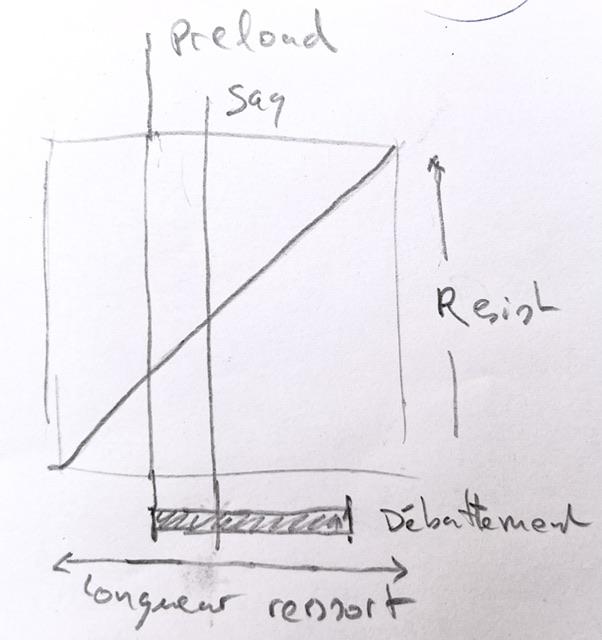 Preload
Sag
Resist
Débattement
Longueur ressort